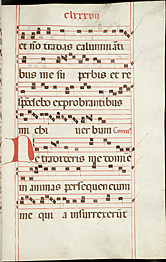 clxxxvii
et nō tradas calumniāti
bus me su perbis et re
spōdebo exprobrantibus
mi chi uerbum
Ne tradideris me domine
in animas persequencium
me qui a insurrexerūt